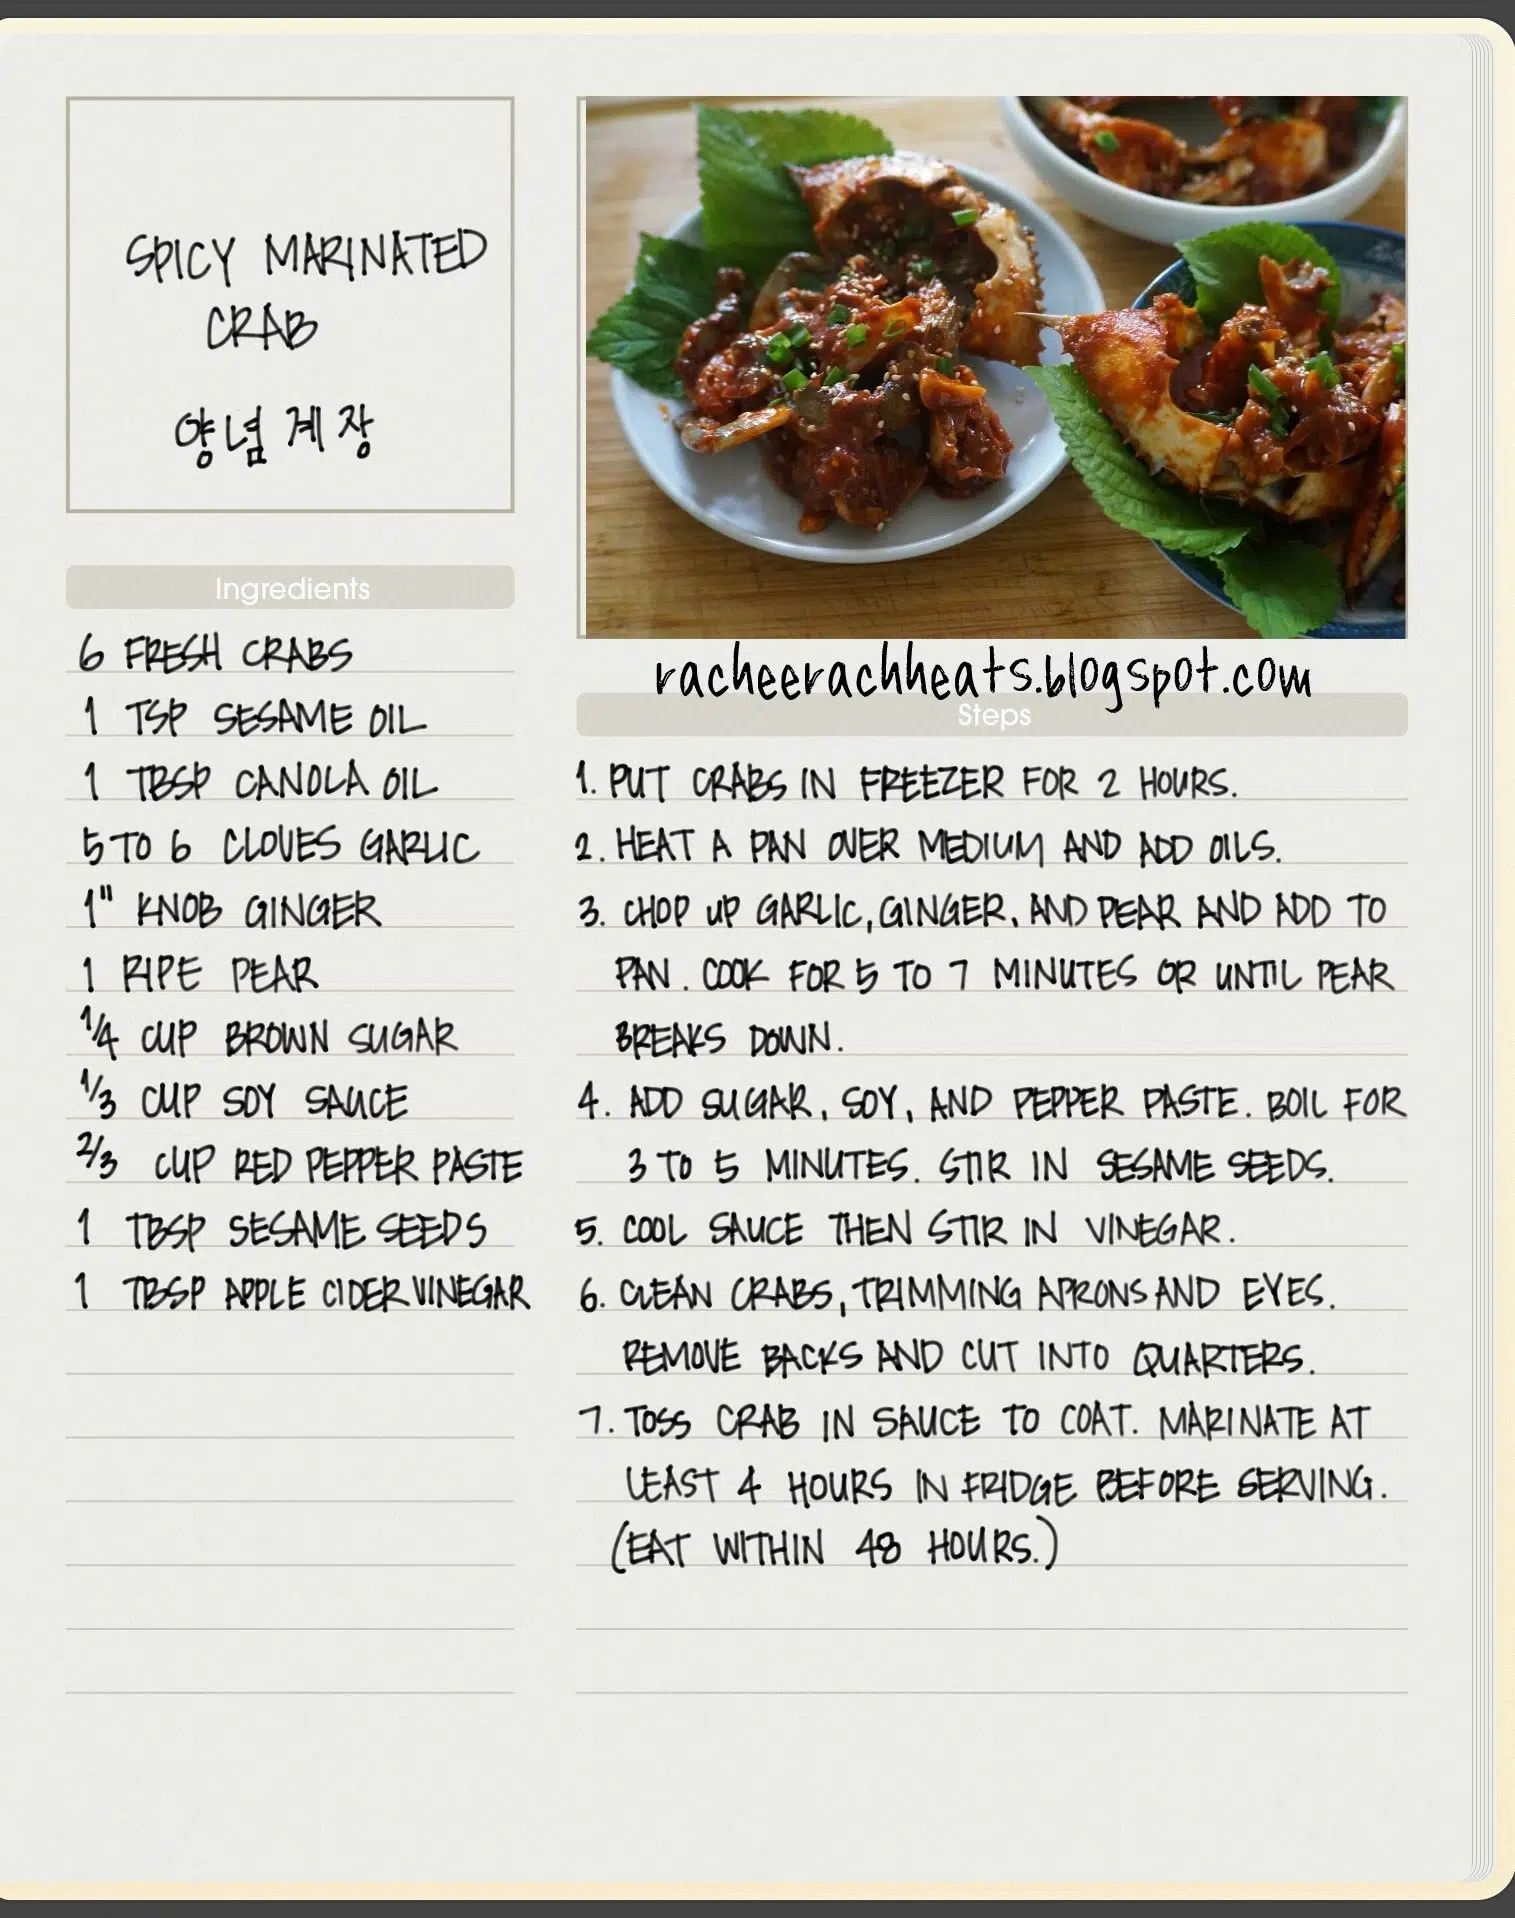 SPICY MARINATED
CRAB
양념 계장
Ingredients
6 FRESH CRABS
1 TSP SESAME OIL
1 TBSP CANOLA OIL
5 TO 6 CLOVES GARLIC
1" KNOB GINGER
1 RIPE PEAR
1/4 CUP BROWN SUGAR
1/3 CUP SOY SAUCE
2/3 CUP RED PEPPER PASTE
1 TBSP SESAME SEEDS
1 TBSP APPLE CIDER VINEGAR
racheerachheats.blogspot.com
Steps
1. PUT CRABS IN FREEZER FOR 2 HOURS.
2. HEAT A PAN OVER MEDIUM AND ADD OILS.
3. CHOP UP GARLIC, GINGER, AND PEAR AND ADD TO
PAN. COOK FOR 5 TO 7 MINUTES OR UNTIL PEAR
BREAKS DOWN.
4. ADD SUGAR, SOY, AND PEPPER PASTE. BOIL FOR
3 TO 5 MINUTES. STIR IN SESAME SEEDS.
5. COOL SAUCE THEN STIR IN VINEGAR.
6. CLEAN CRABS, TRIMMING APRONS AND EYES.
REMOVE BACKS AND CUT INTO QUARTERS.
7. TOSS CRAB IN SAUCE TO COAT. MARINATE AT
LEAST 4 HOURS IN FRIDGE BEFORE SERVING.
(EAT WITHIN 48 HOURS.)